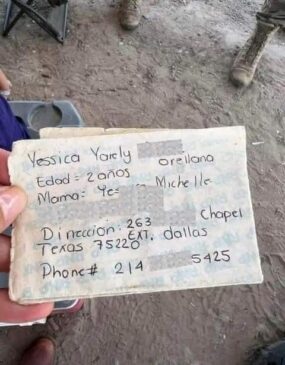 Yessica Yarely
orellana
Edad = 2 años
Mama = Ye= Michelle
Chapel
Dirección: 263
EXT. dallas
Texas 75220
Phone# 214 5425